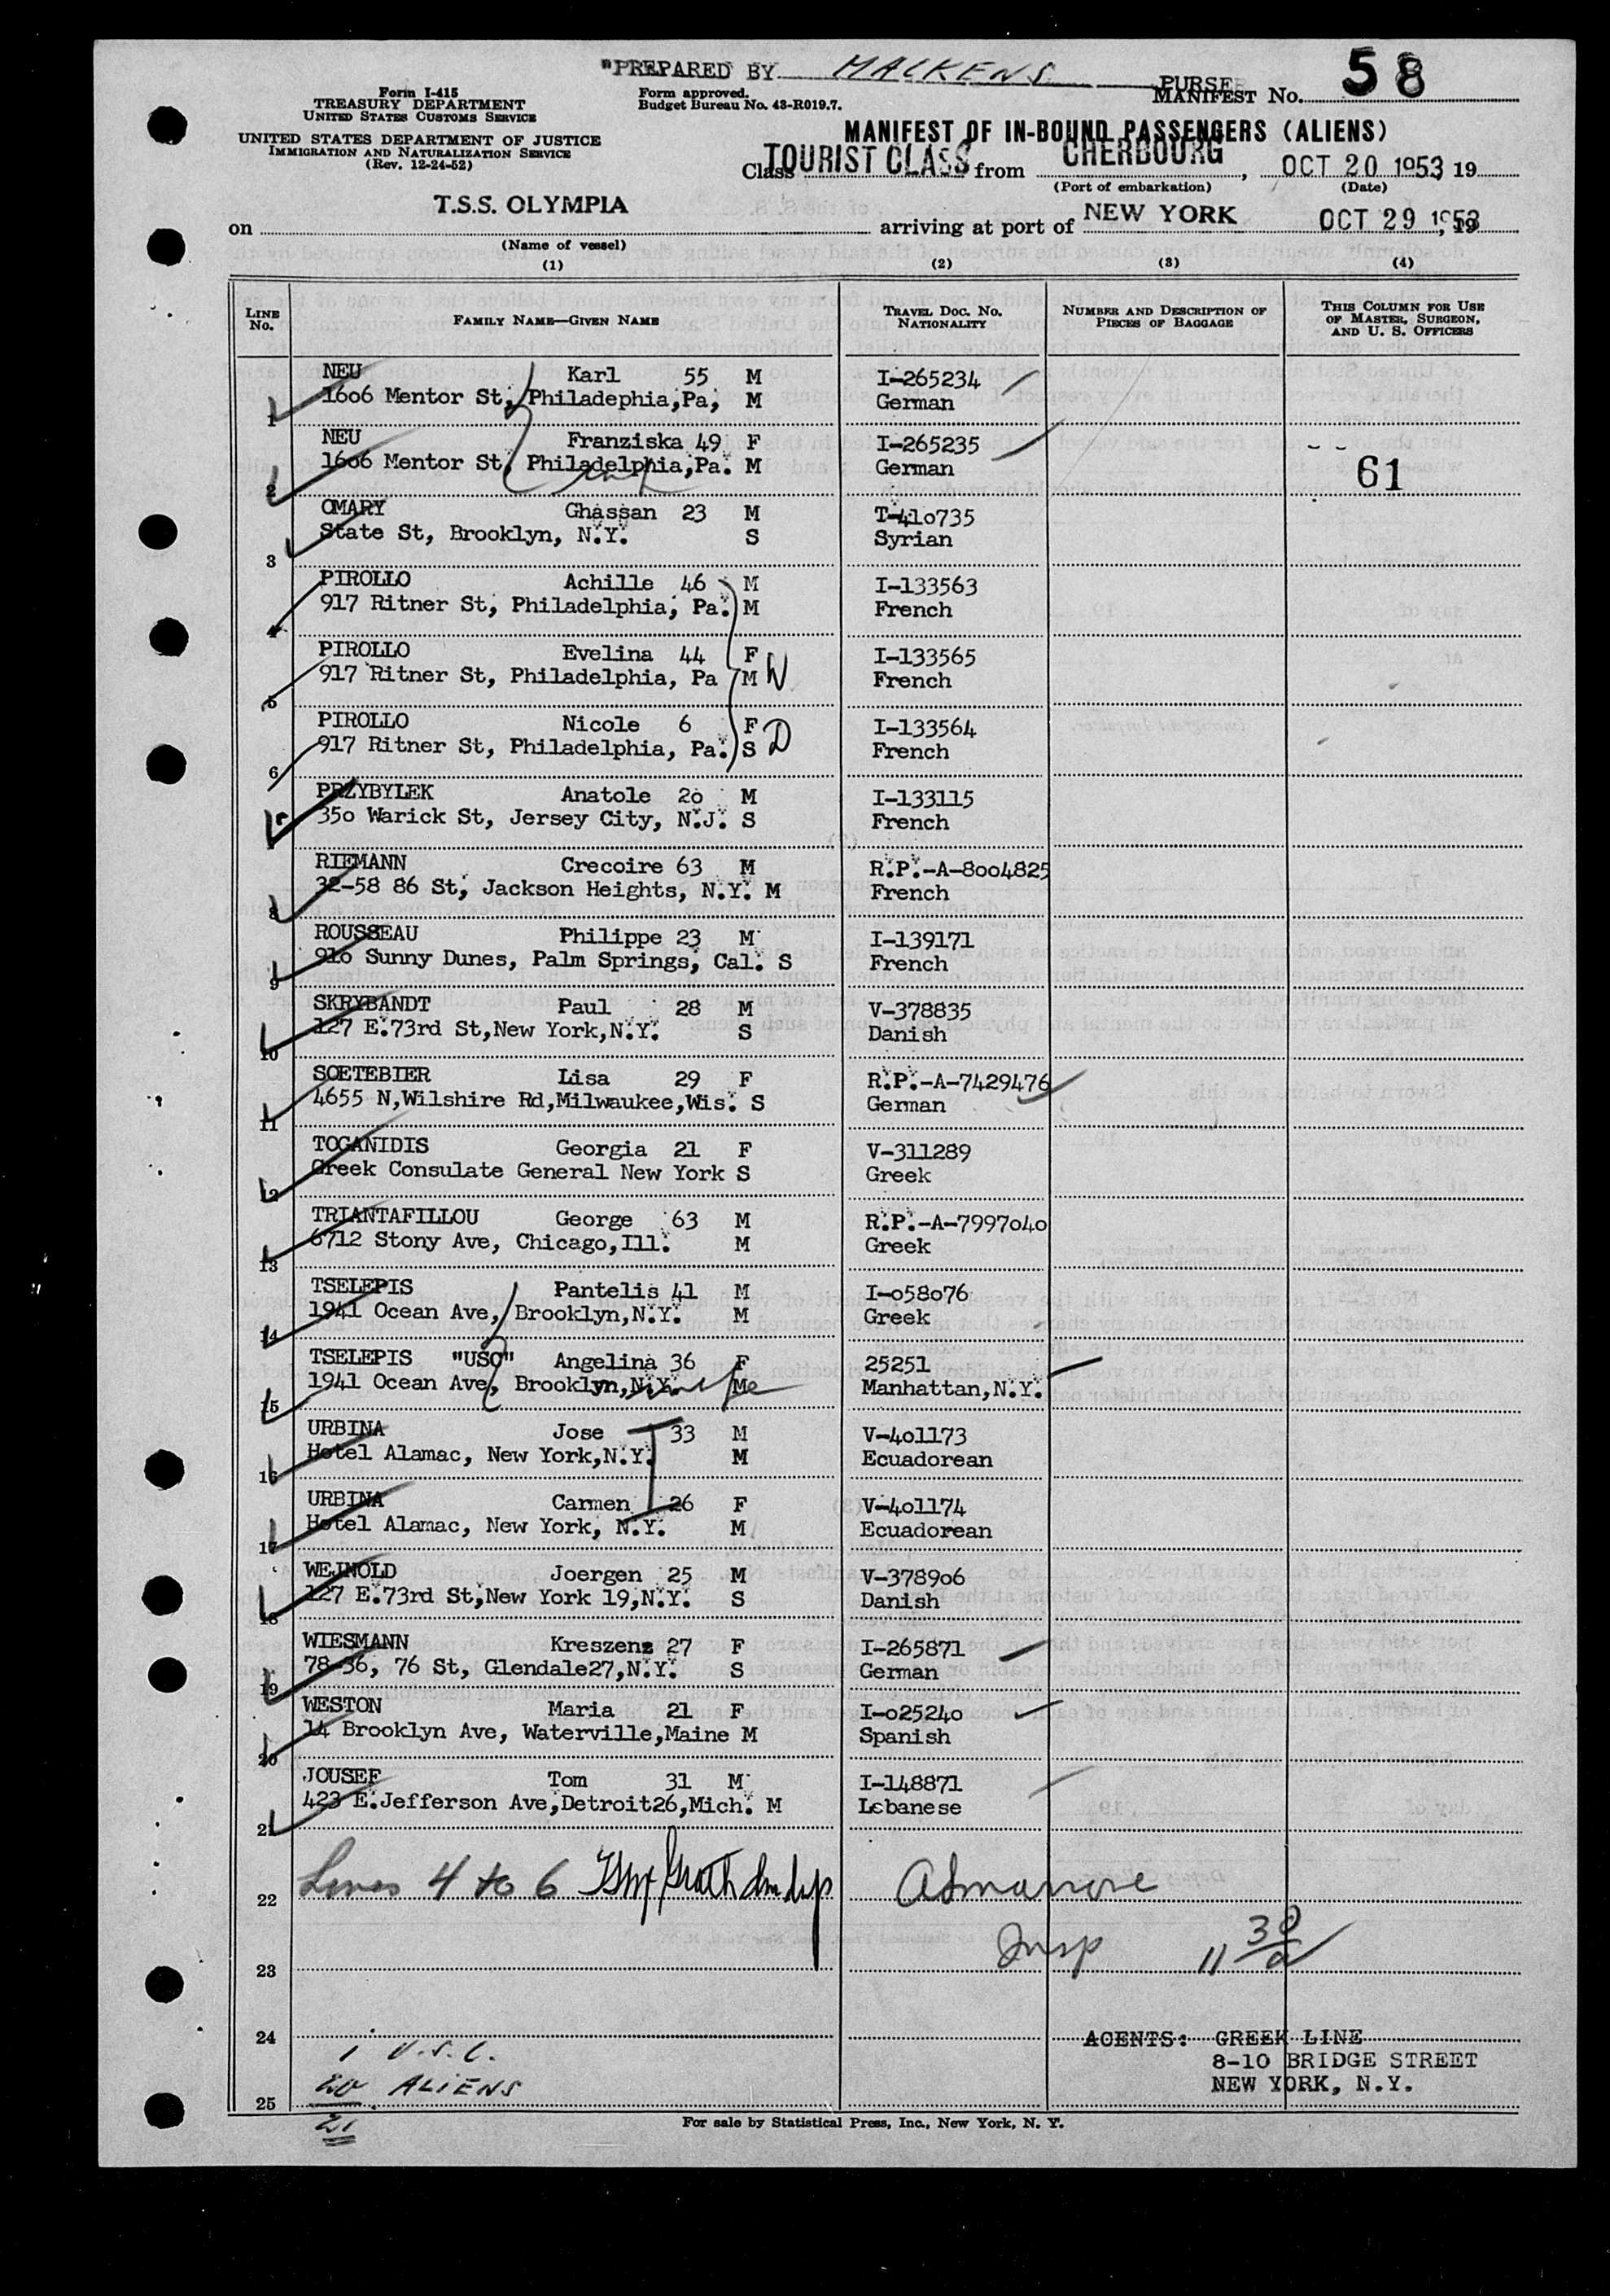 "PREPARED BY MALKENS PURSER
Form I-415
TREASURY DEPARTMENT
UNITED STATES CUSTOMS SERVICE
UNITED STATES DEPARTMENT OF JUSTICE
IMMIGRATION AND NATURALIZATION SERVICE
(Rev. 12-24-52)
Form approved.
Budget Bureau No. 43-R019.7.
MANIFEST No. 58
MANIFEST OF IN-BOUND PASSENGERS (ALIENS)
Class TOURIST CLASS from CHERBOURG, OCT 20 1953, 19
(Port of embarkation) (Date)
on T.S.S. OLYMPIA arriving at port of NEW YORK OCT 29 1953, 19
(Name of vessel)
(1) (2) (3) (4)
LINE No.
FAMILY NAME—GIVEN NAME
TRAVEL DOC. NO. NATIONALITY
NUMBER AND DESCRIPTION OF PIECES OF BAGGAGE
THIS COLUMN FOR USE OF MASTER, SURGEON, AND U. S. OFFICERS
NEU Karl 55 M I-265234
1 1606 Mentor St, Philadephia,Pa, M German
NEU Franziska 49 F I-265235
2 1606 Mentor St, Philadelphia,Pa. M German 61
OMARY Ghassan 23 M T-410735
3 State St, Brooklyn, N.Y. S Syrian
PIROLLO Achille 46 M I-133563
4 917 Ritner St, Philadelphia, Pa. M French
PIROLLO Evelina 44 F I-133565
5 917 Ritner St, Philadelphia, Pa M W French
PIROLLO Nicole 6 F I-133564
6 917 Ritner St, Philadelphia, Pa. S D French
PRZYBYLEK Anatole 20 M I-133115
350 Warick St, Jersey City, N.J. S French
RIEMANN Crecoire 63 M R.P.-A-8004825
8 32-58 86 St, Jackson Heights, N.Y. M French
ROUSSEAU Philippe 23 M I-139171
9 910 Sunny Dunes, Palm Springs, Cal. S French
SKRYBANDT Paul 28 M V-378835
10 127 E.73rd St,New York,N.Y. S Danish
SOETEBIER Lisa 29 F R.P.-A-7429476
11 4655 N,Wilshire Rd,Milwaukee,Wis. S German
TOGANIDIS Georgia 21 F V-311289
12 Greek Consulate General New York S Greek
TRIANTAFILLOU George 63 M R.P.-A-7997040
13 6712 Stony Ave, Chicago,Ill. M Greek
TSELEPIS Pantelis 41 M I-058076
14 1941 Ocean Ave, Brooklyn,N.Y. M Greek
TSELEPIS "USC" Angelina 36 F 25251
15 1941 Ocean Ave, Brooklyn,N.Y. M Manhattan,N.Y.
URBINA Jose 33 M V-401173
16 Hotel Alamac, New York,N.Y. M Ecuadorean
URBINA Carmen 26 F V-401174
17 Hotel Alamac, New York, N.Y. M Ecuadorean
WEJNOLD Joergen 25 M V-378906
18 127 E.73rd St,New York 19,N.Y. S Danish
WIESMANN Kreszenz 27 F I-265871
19 78-36, 76 St, Glendale27,N.Y. S German
WESTON Maria 21 F I-025240
20 14 Brooklyn Ave, Waterville,Maine M Spanish
JOUSEF Tom 31 M I-148871
21 423 E.Jefferson Ave,Detroit26,Mich. M Lebanese
22 Lines 4 to 6
Insp 11 30
23
24 AGENTS: GREEK LINE
1 U.S.C. 8-10 BRIDGE STREET
20 ALIENS NEW YORK, N.Y.
25
21
For sale by Statistical Press, Inc., New York, N. Y.